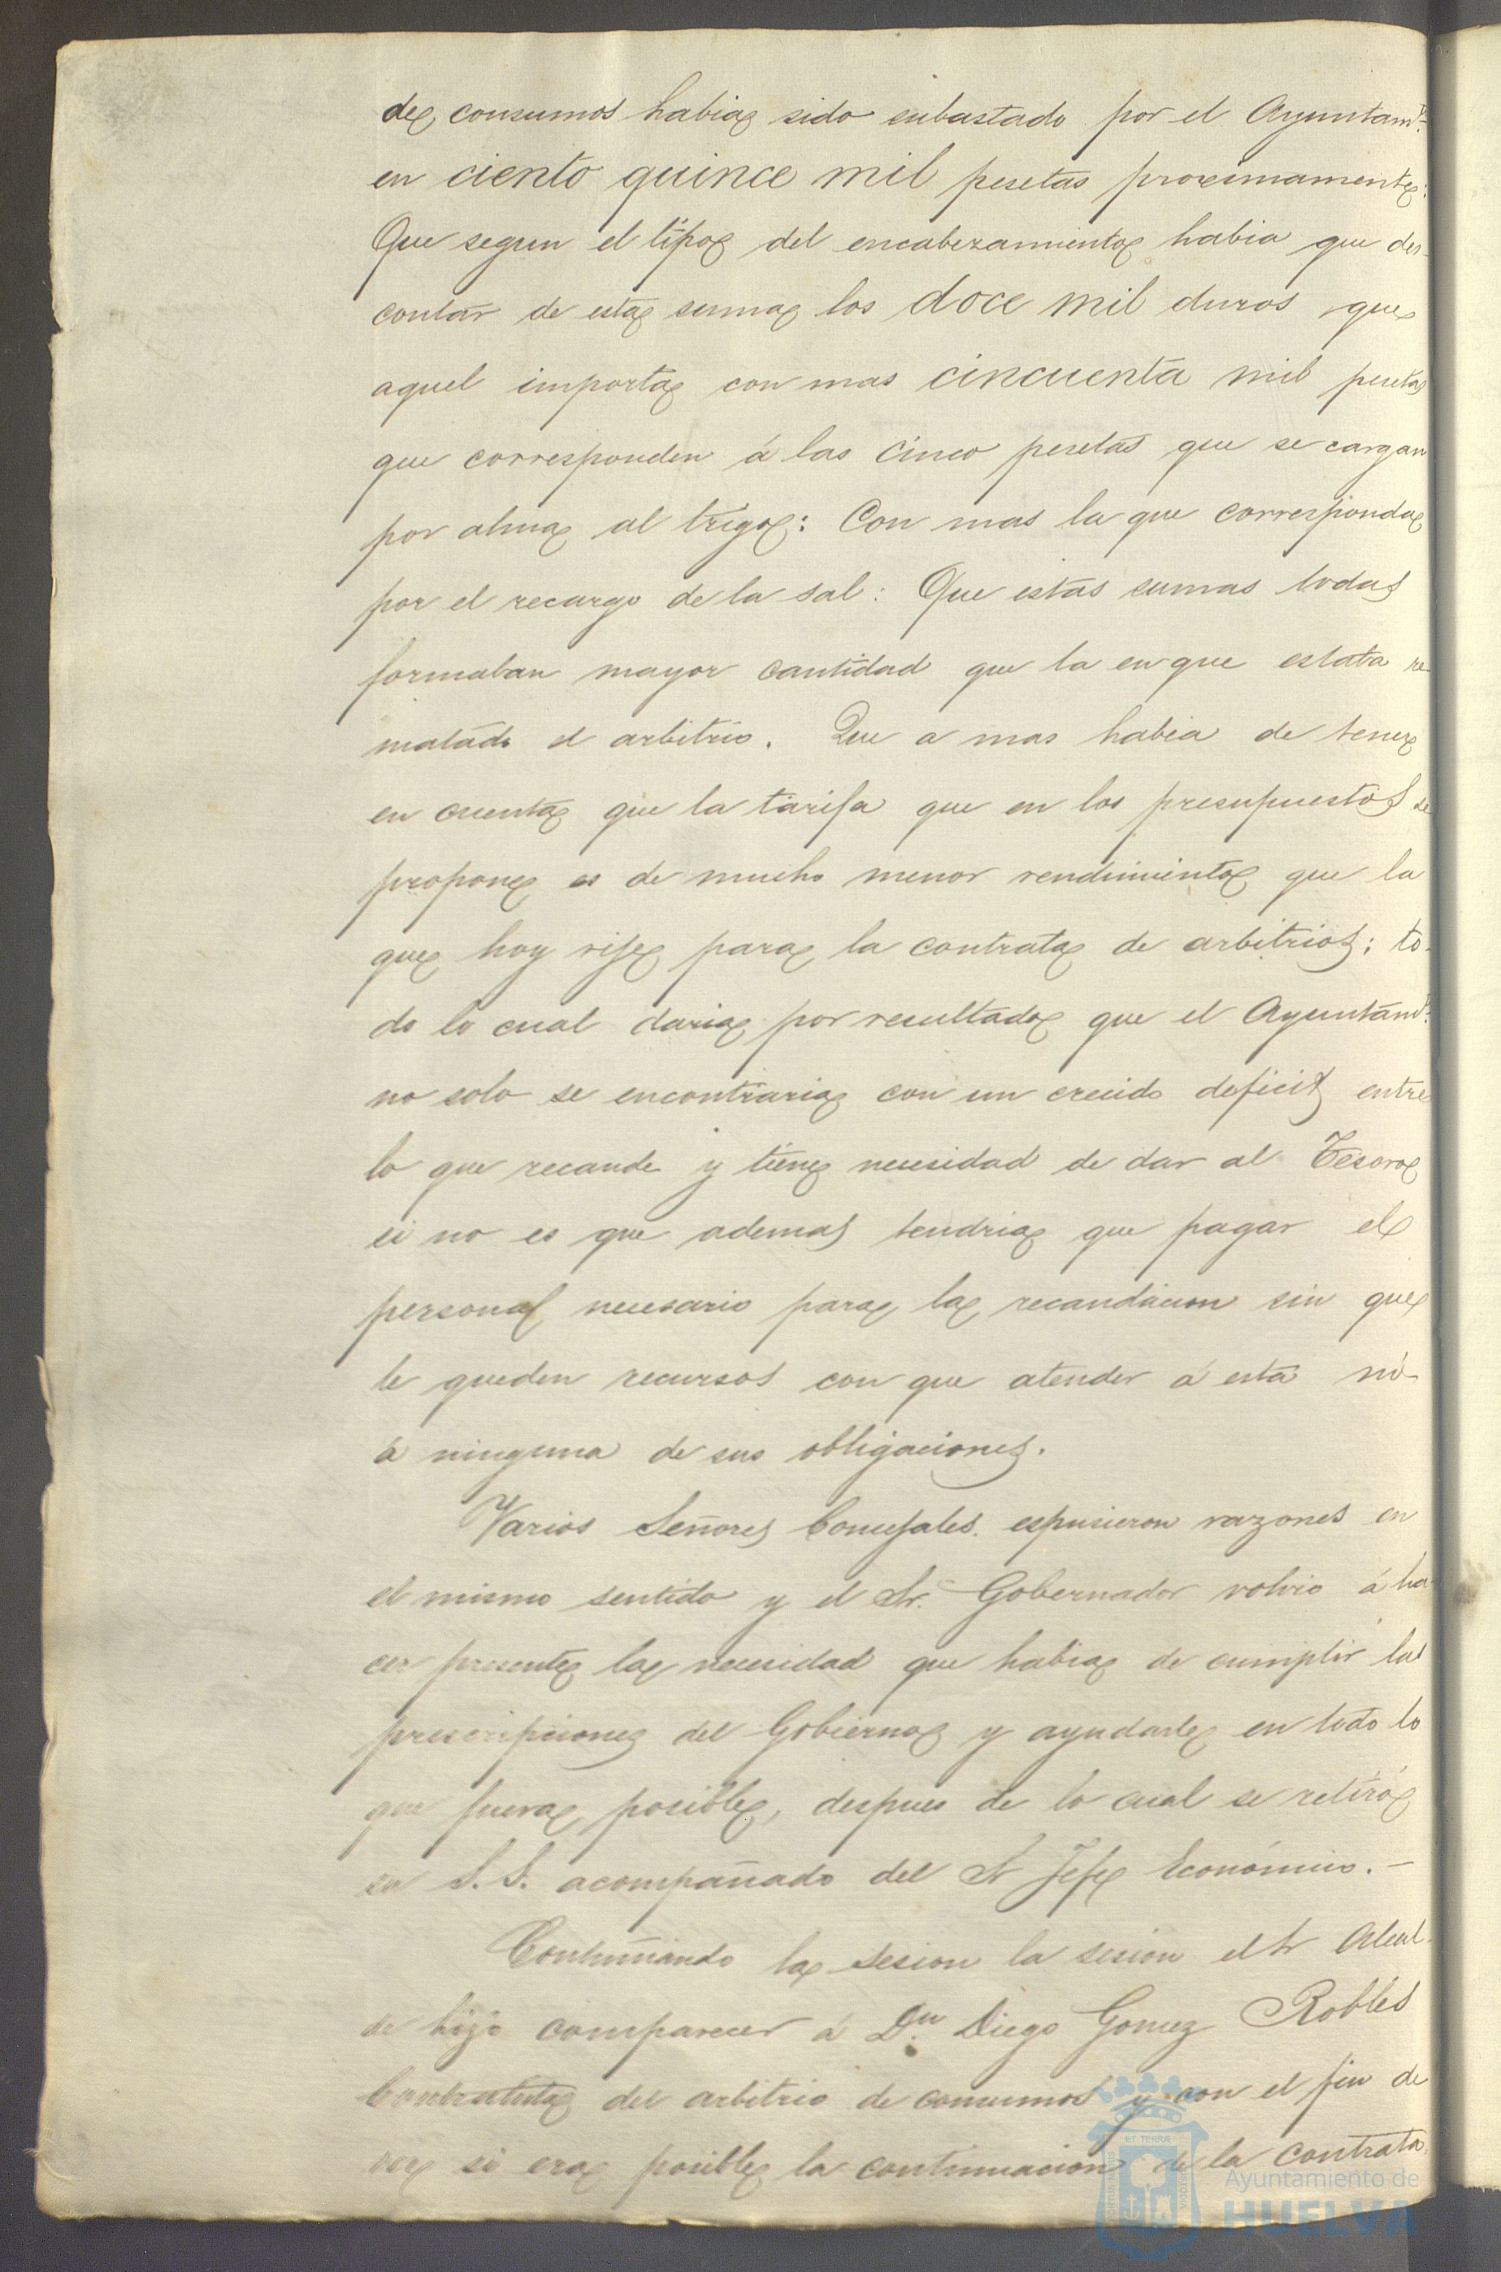 de consumos habia sido subastado por el Ayuntamto.
en ciento quince mil pesetas proximamente:
Que segun el tipo del encabezamiento habia que des-
contar de esta suma los doce mil duros que
aquel importa con mas cincuenta mil pesetas
que corresponden á las cinco pesetas que se cargan
por alma al trigo: Con mas la que corresponda
por el recargo de la sal: Que estas sumas todas
formaban mayor cantidad que la en que estaba re-
matado el arbitrio. Que a mas habia de tener
en cuenta que la tarifa que en los presupuestos se
propone es de mucho menor rendimiento que la
que hoy rije para la contrata de arbitrios; to-
do lo cual daria por resultado que el Ayuntamto.
no solo se encontraria con un crecido deficit entre
lo que recaude y tiene necesidad de dar al Tesoro
si no es que ademas tendria que pagar el
personal necesario para la recaudacion sin que
le queden recursos con que atender á esta ni
á ninguna de sus obligaciones.
Varios Señores Concejales espusieron razones en
el mismo sentido y el Sr. Gobernador volvio á ha-
cer presente la necesidad que habia de cumplir las
prescripciones del Gobierno y ayudarle en todo lo
que fuera posible, despues de lo cual se retiró
su S.S. acompañado del Sr Jefe Económico.-
Continuando la sesion la sesion el Sr Alcal-
de hizo comparecer á Dn. Diego Gomez Robles
Contratista del arbitrio de consumos y con el fin de
ver si era posible la continuacion de la contrata
Ayuntamiento de
HUELVA